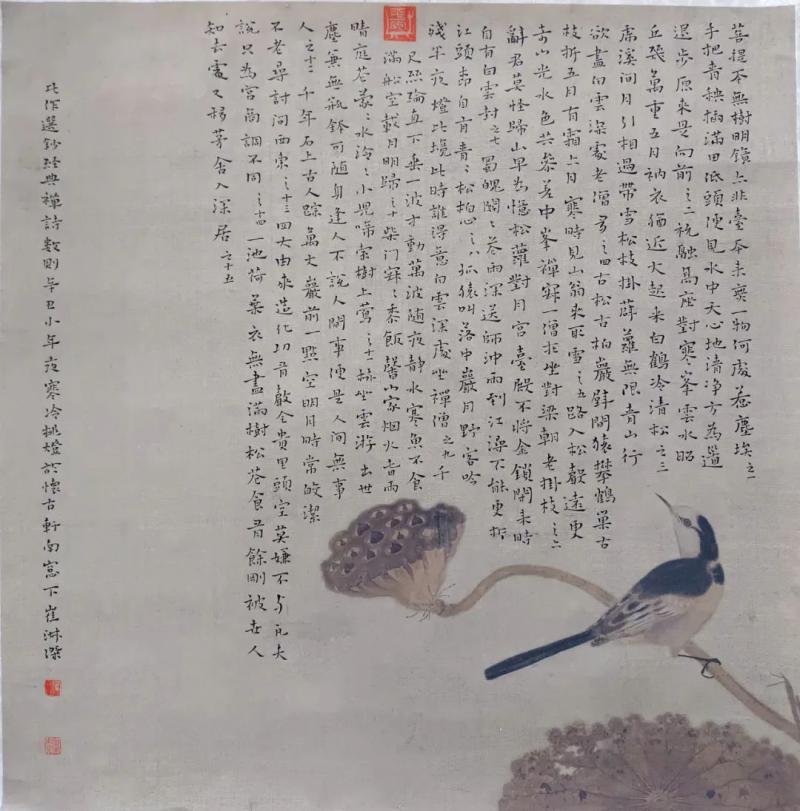 菩提本無樹明鏡亦非臺本來無一物何處惹塵埃之一
手把青秧插滿田低頭便見水中天心地清净方為道
退步原來是向前之二祝融高座對寒峯雲水昭
丘幾萬重五月衲衣猶近火起來白鶴冷清松之三
虎溪閒月引相過帶雪松枝掛薜蘿無限青山行
欲盡白雲深處老僧多之四古松古柏巖壁間猿攀鶴巢古
枝折五月有霜六月寒時見山翁來取雪之五路入松聲遠更
奇山光水色共參差中峯禪寂一僧在坐對梁朝老掛枝之六
辭君莫怪歸山早為憶松蘿對月宮臺殿不將金鎖閉來時
自有白雲封之七蜀魄関々花雨深送師沖雨到江潯不能更折
江頭柳自有青々松柏心之八孤猿叫落中巖月野客吟
殘半夜燈此境此時誰得意白雲深處坐禪僧之九千
尺絲綸直下垂一波才動萬波隨夜靜水寒魚不食
滿船空載月明歸之十柴门寂々黍飯馨山家烟火春雨
晴庭花蒙々水泠々小兒啼索樹上鶯之十一林坐雲游出世
塵兼無瓶鉢可隨身逢人不說人間事便是人间無事
人之十二千年石上古人踪萬丈巖前一點空明月時常皎潔
不老尋討問西東之十三四大由來造化功有聲全貴里頭空莫嫌不与凡夫
說只為宮商調不同之十四一池荷葉衣無盡滿樹松花食有餘剛被世人
知去處又移茅舍入深居之十五
此作選鈔經典禪詩數則辛丑小年夜寒冷挑燈於懷古軒南窗下崔淋深